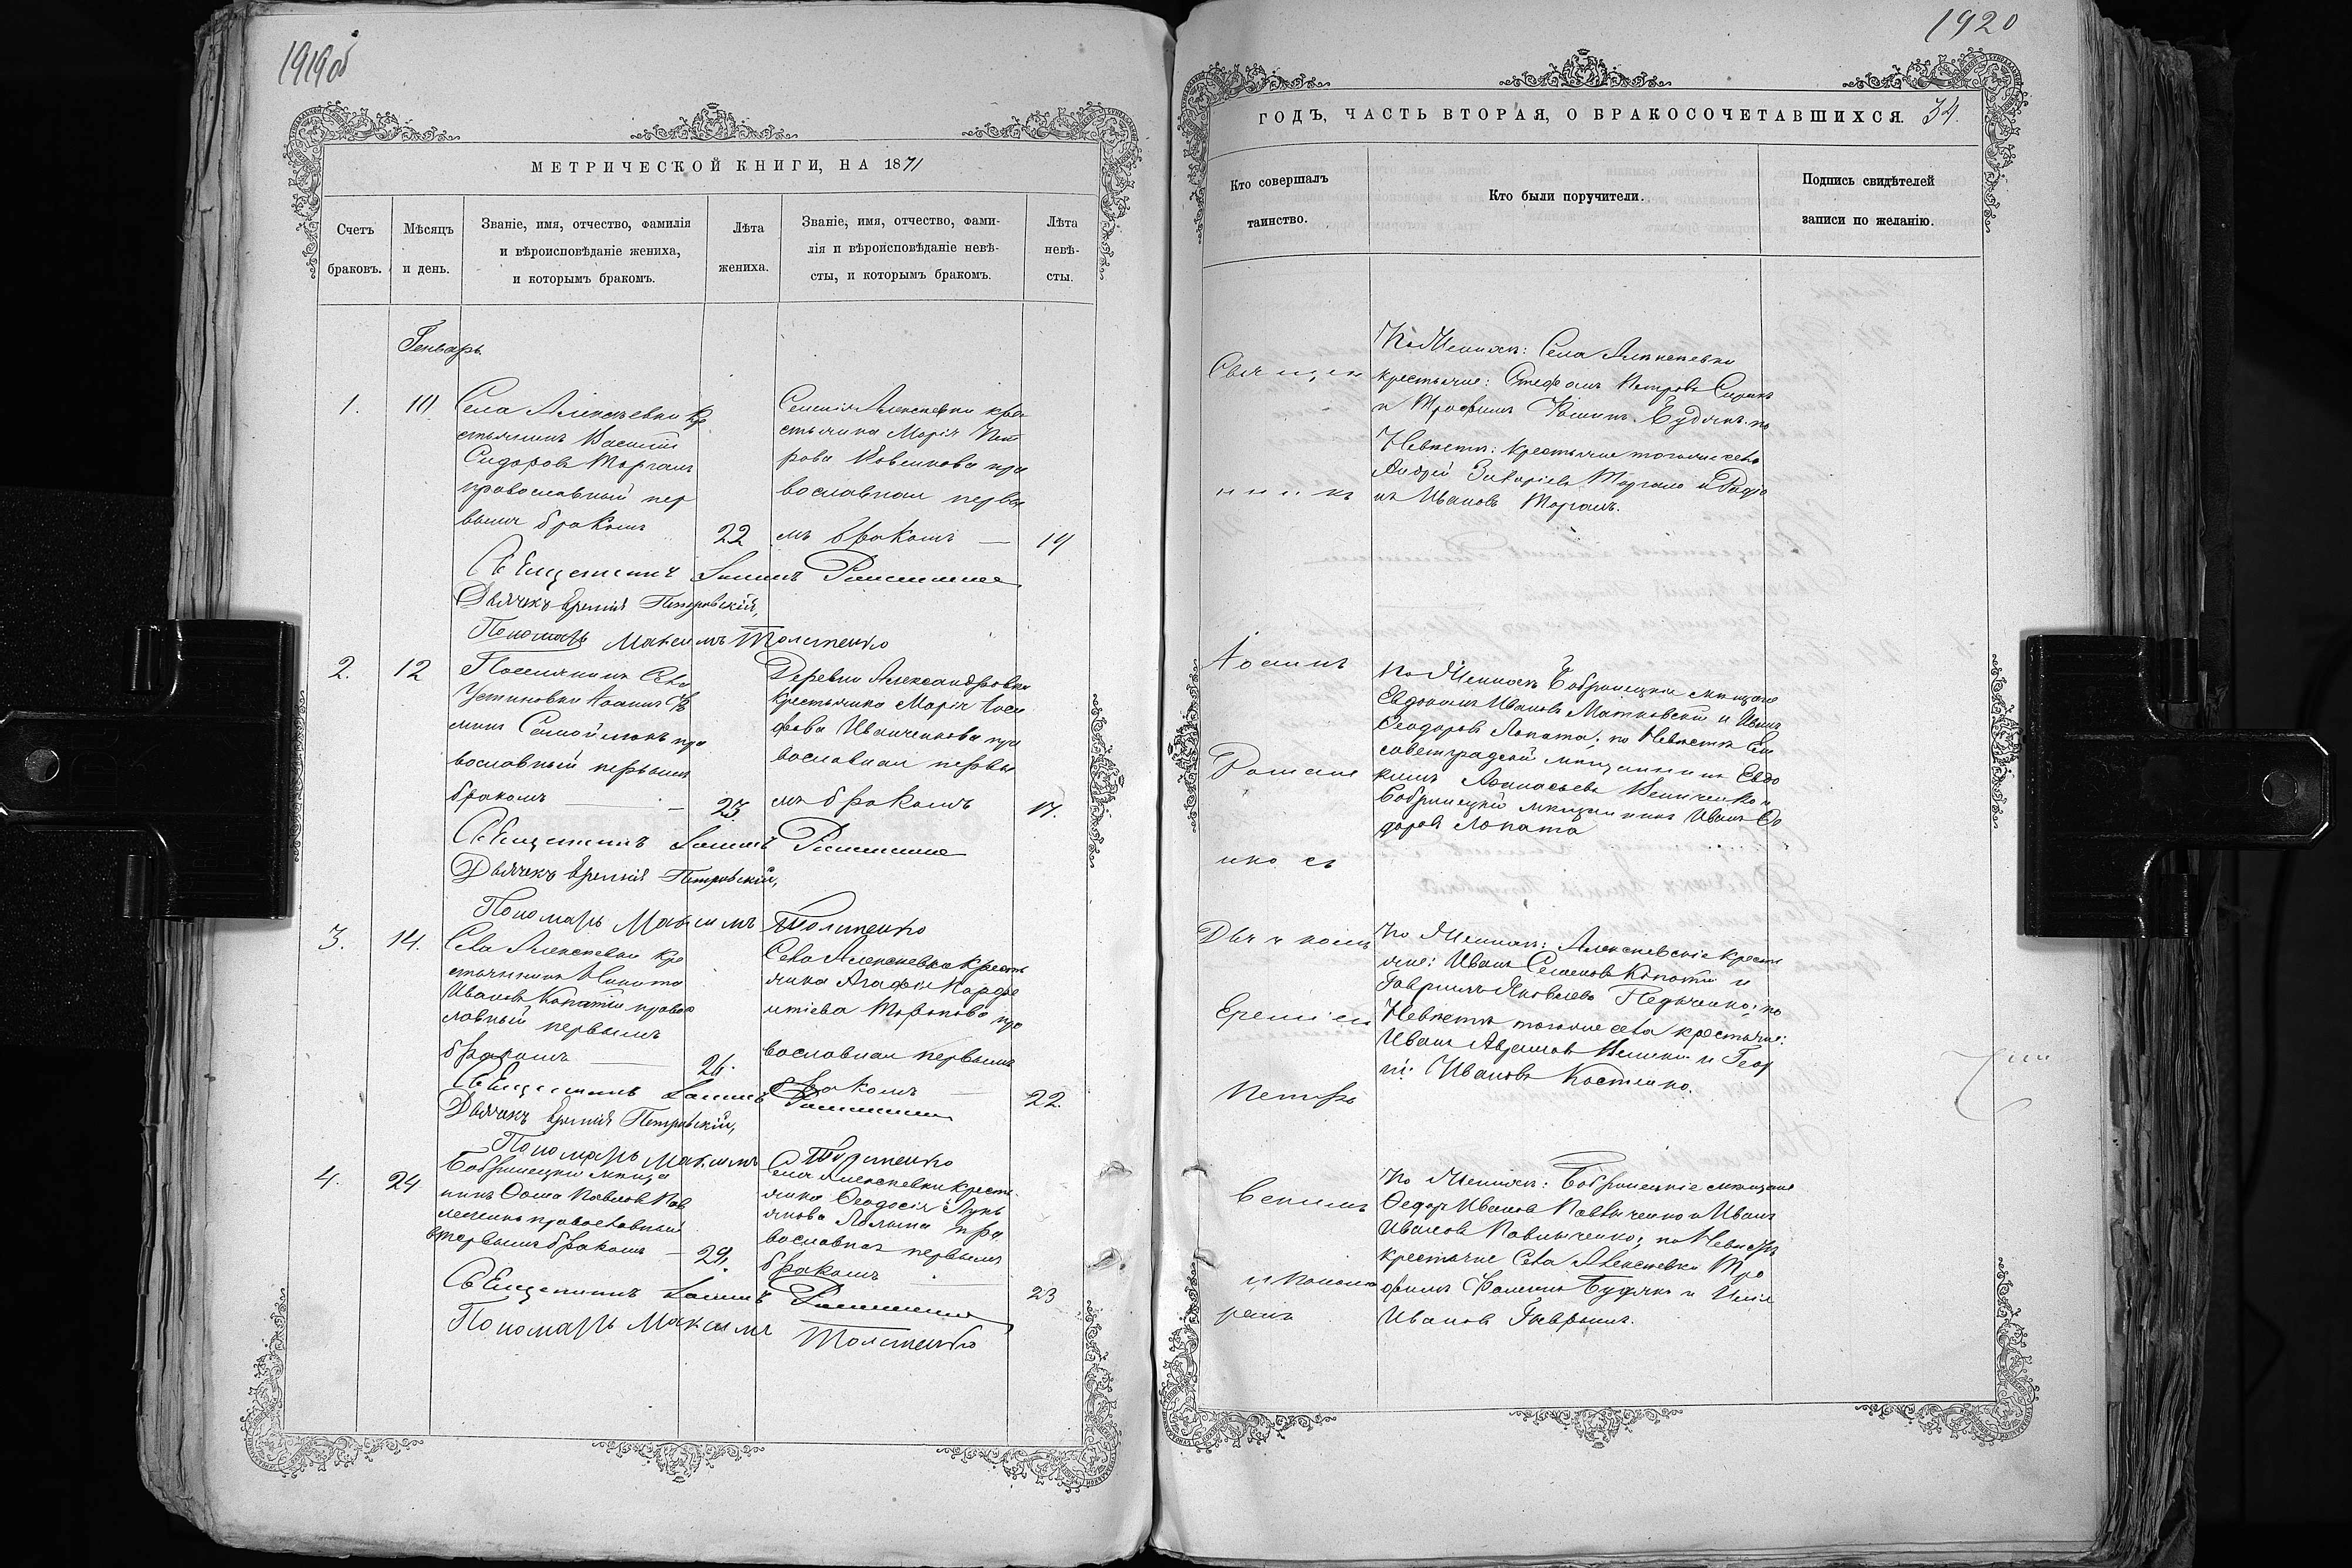 1919об
МЕТРИЧЕСКОЙ КНИГИ, НА 1871
Счетъ
браковъ.
Мѣсяцъ
и день.
Званіе, имя, отчество, фамилія
и вѣроисповѣданіе жениха,
и которымъ бракомъ.
Лѣта
жениха.
Званіе, имя, отчество, фами-
лія и вѣроисповѣданіе невѣ-
сты, и которымъ бракомъ.
Лѣта
невѣ-
сты.
Генварь
1.
10
Села Алексѣевки кре
стьянинъ Василій
Сидоровъ Торганъ
православный пер
вымъ бракомъ
22
Селенія Алексѣевки кре
стьянка Марія Пет
рова православная первы
мъ бракомъ
19
Священникъ Іоаннъ
Дьячекъ Еремій Петровскій,
Пономарь Максимъ Толстенко
2.
12
Поселянинъ Села
Устиновки Іоаннъ
православный первымъ
бракомъ
23.
Деревни Александровки
крестьянка Марія Іоси
фова Иванченкова пра
вославная первы
мъ бракомъ
17.
Священникъ Іоаннъ
Дьячекъ Еремій Петровскій,
Пономарь Максимъ Толстенко
3.
14.
Села Алексѣевки кре
стьянинъ Никита
Ивановъ Копатій правос
лавный первымъ
бракомъ
26.
Села Алексѣевки кресть
янка Агафія Парфе
нтіева пра
вославная первымъ
бракомъ
22.
Священникъ Іоаннъ
Дьячекъ Еремій Петровскій,
Пономарь Максимъ Толстенко
4.
24
Бобринецкій мѣща
нинъ Ѳома Павловъ Пав
православный
первымъ бракомъ
29.
Села Алексѣевки кресть
янка Ѳеодосія Лукь
янова пра
вославная первымъ
бракомъ
23
Священникъ Іоаннъ
Пономарь Максимъ Толстенко
1920
ГОДЪ, ЧАСТЬ ВТОРАЯ, О БРАКОСОЧЕТАВШИХСЯ.
34.
Кто совершалъ
таинство.
Кто были поручители.
Подпись свидѣтелей
записи по желанію.
Священ
никъ
Іоаннъ
Романе
нко съ
Дьячкомъ
Еремiем
Петров
скимъ
и понома
ремъ
По Женихѣ: Села Алексѣевки
крестьяне: Стефанъ Петровъ
и Трофимъ Ѳоминъ Будякъ по
Невѣстѣ: крестьяне тогоже села
Андрей Захаріевъ Торганъ и
Ивановъ Торганъ.
По Женихѣ Бобринецкіе мѣщане
Евдокимъ Ивановъ Матковскій и Иванъ
Ѳеодоровъ Лопата; по Невѣстѣ Ели
саветградскій мѣщанинъ Евдо
кимъ Аѳанасьевъ Величенко и
Бобринецкій мѣщанинъ Иванъ Ѳео
доровъ Лопата
По Женихѣ: Алексѣевскіе кресть
яне: Иванъ Семеновъ Копатій и
Гавріилъ Яковлевъ по
Невѣстѣ тогоже села крестьяне:
Иванъ и Геор
гій Ивановъ Костенко.
По Женихѣ: Бобринецкіе мѣщане
Ѳедоръ Ивановъ Павличенко и Иванъ
Ивановъ Павличенко; по Невѣстѣ
крестьяне Села Алексѣевки Тро
фимъ Ѳоминъ Будякъ и
Ивановъ Гаврышъ.